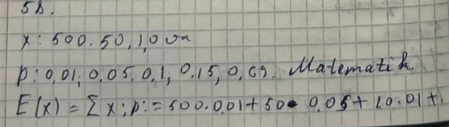 58.
x: 500. 50, 1, 0
p: 0,01, 0,05, 0,1, 0,15, 0,69. Matematik
E(x) = Σ x; p: = 500.0.01 + 50 0,05 + 10.01 +